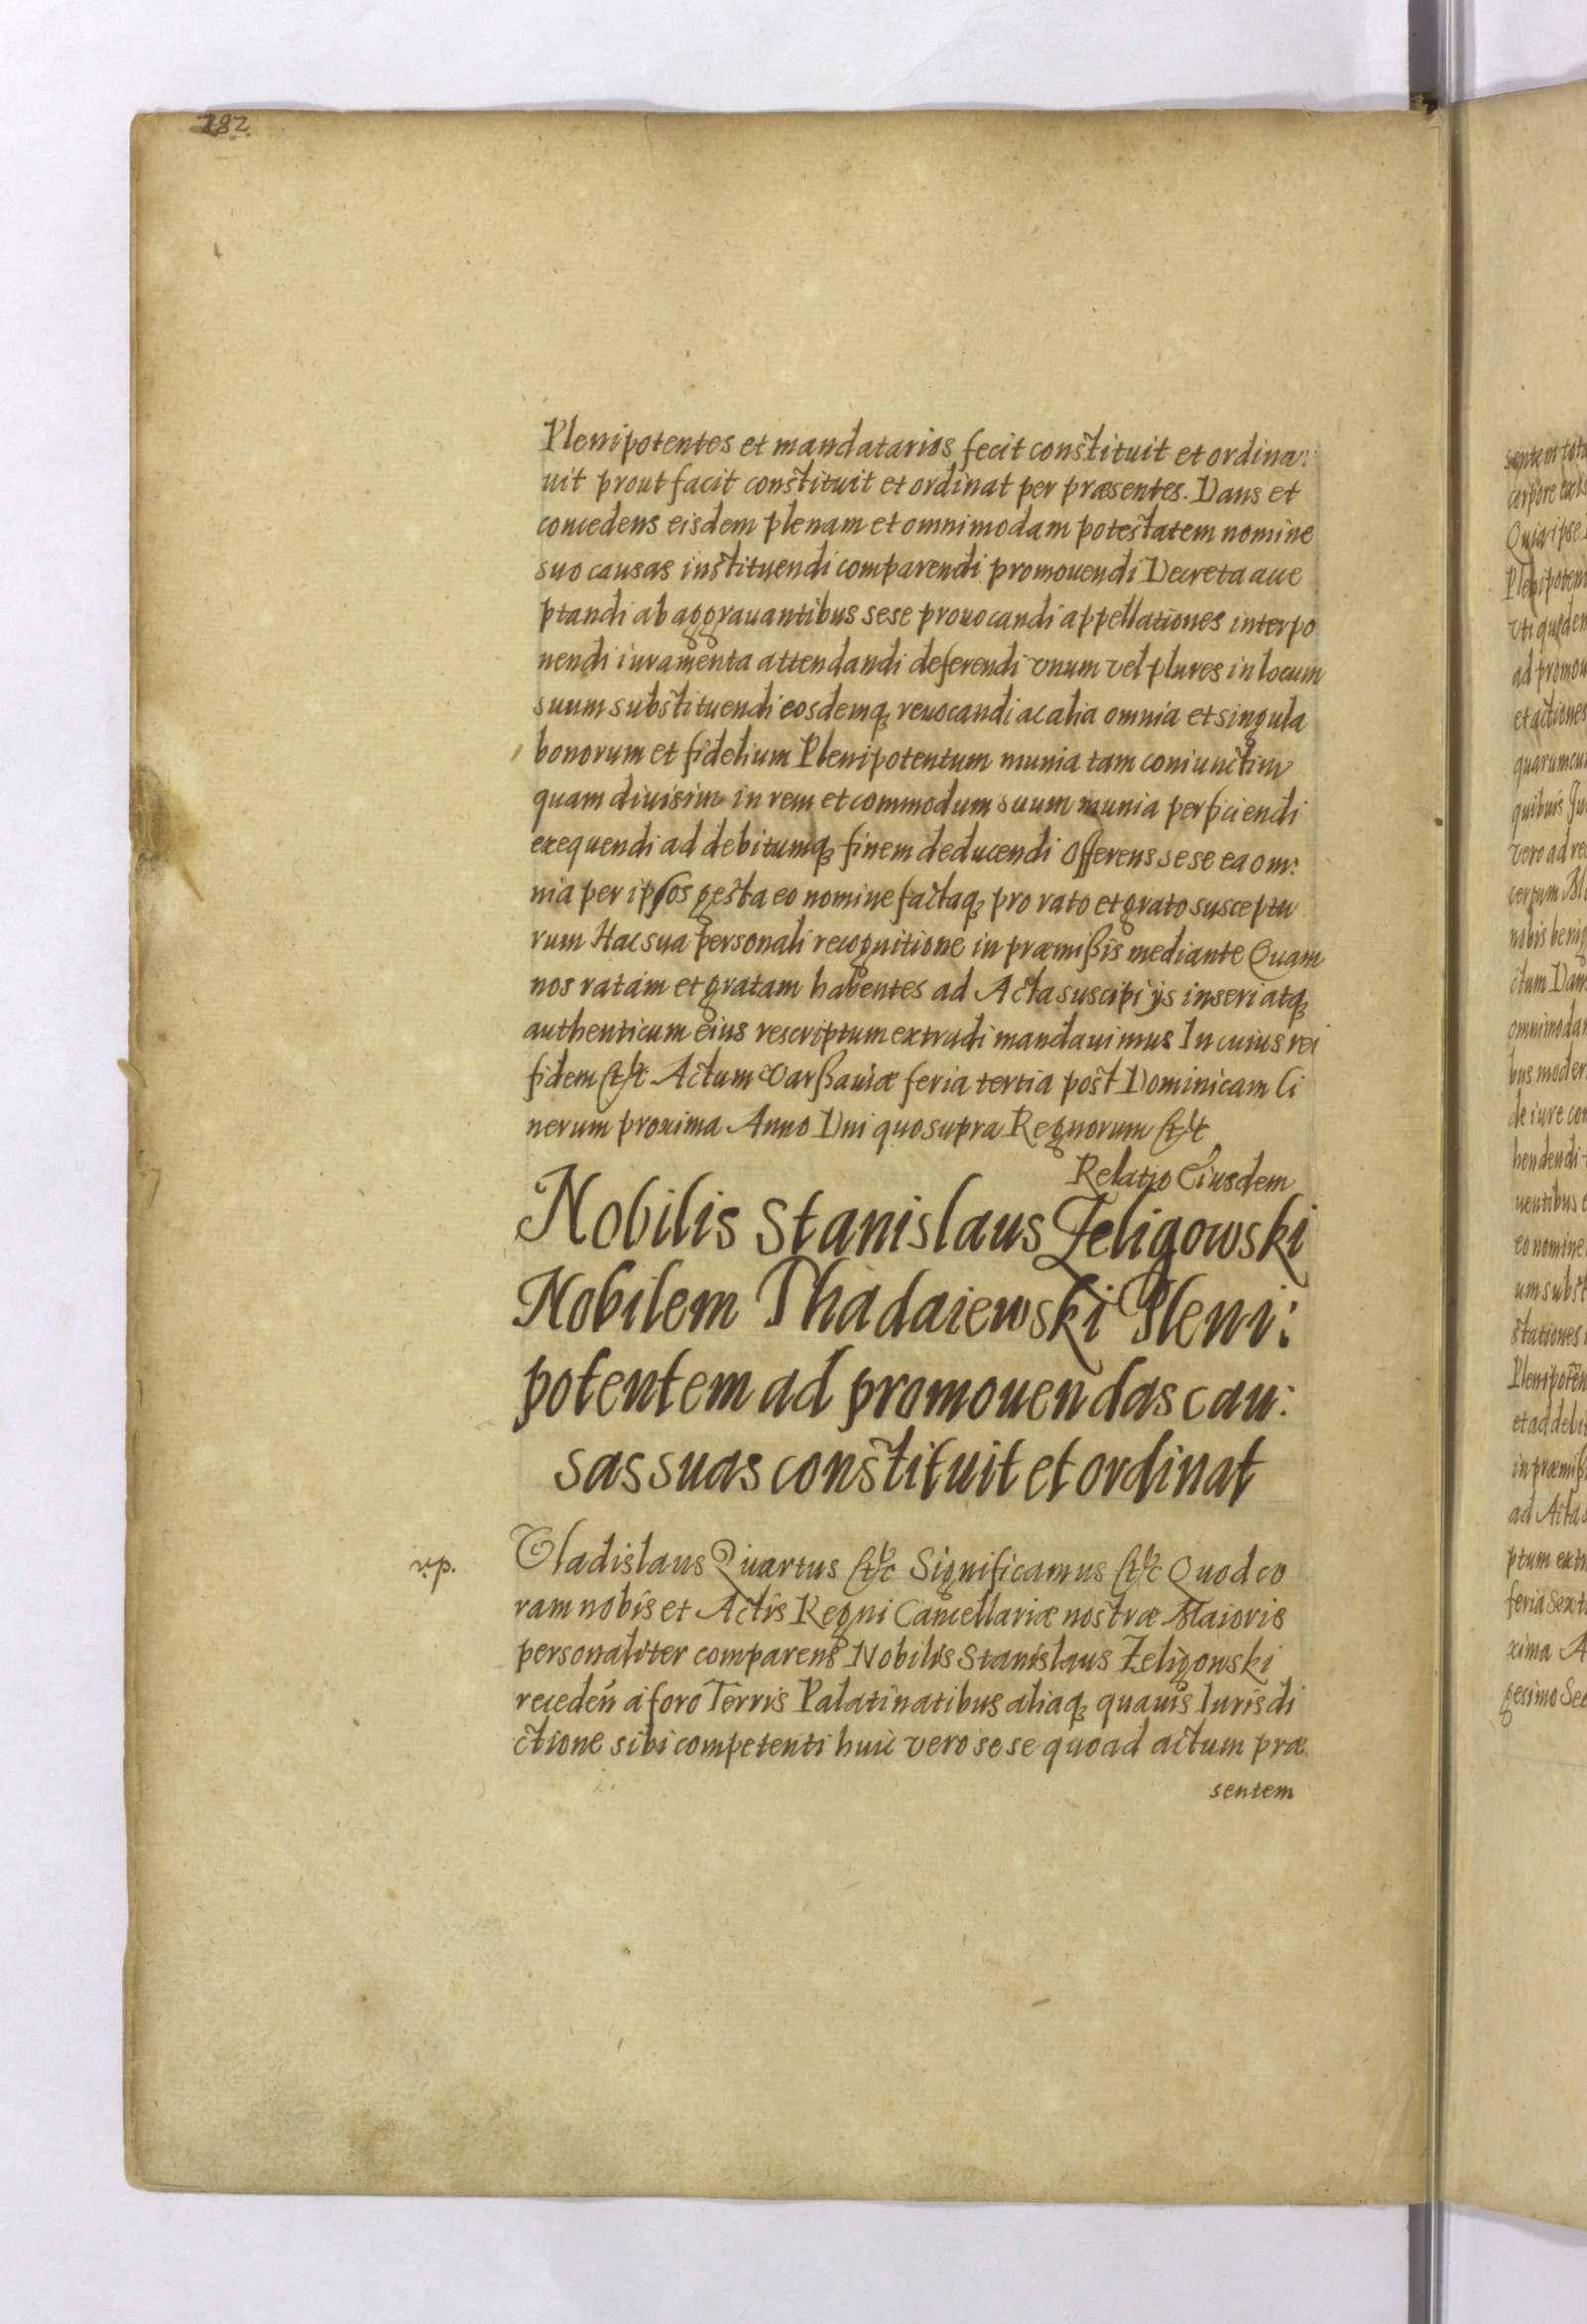 282.
Plenipotentes et mandatarios fecit constituit et ordina:
uit prout facit constituit et ordinat per præsentes. Dans et
concedens eisdem plenam et omnimodam potestatem nomine
suo causas instituendi comparendi promouendi Decreta acce
ptandi ab aggrauantibus sese prouocandi appellationes interpo
nendi iuramenta attendandi deferendi vnum vel plures in locum
suum substituendi eosdemq; reuocandi ac alia omnia et singula
bonorum et fidelium Plenipotentum munia tam coniunctim
quam diuisim in rem et commodum suum munia perficiendi
exequendi ad debitumq; finem deducendi Offerens sese ea om:
nia per ipsos gesta eo nomine factaq; pro rato et grato susceptu
rum Hac sua personali recognitione in præmißis mediante Quam
nos ratam et gratam habentes ad Acta suscipi ijs inseri atq;
authenticum eius rescriptum extradi mandauimus In cuius rei
fidem etc Actum Varßauiæ feria tertia post Dominicam Ci
nerum proxima Anno Dni quo supra Regnorum etc
Relatio Eiusdem
Nobilis Stanislaus Zeligowski
Nobilem Thadaiewski Pleni:
potentem ad promouendas cau:
sas suas constituit et ordinat
Vladislaus Quartus etc Significamus etc Quod co
ram nobis et Actis Regni Cancellariæ nostræ Maioris
personaliter comparens Nobilis Stanislaus Zeligowski
receden̄ a foro Terris Palatinatibus aliaq; quauis Iurisdi
ctione sibi competenti huic vero sese quoad actum præ
sentem